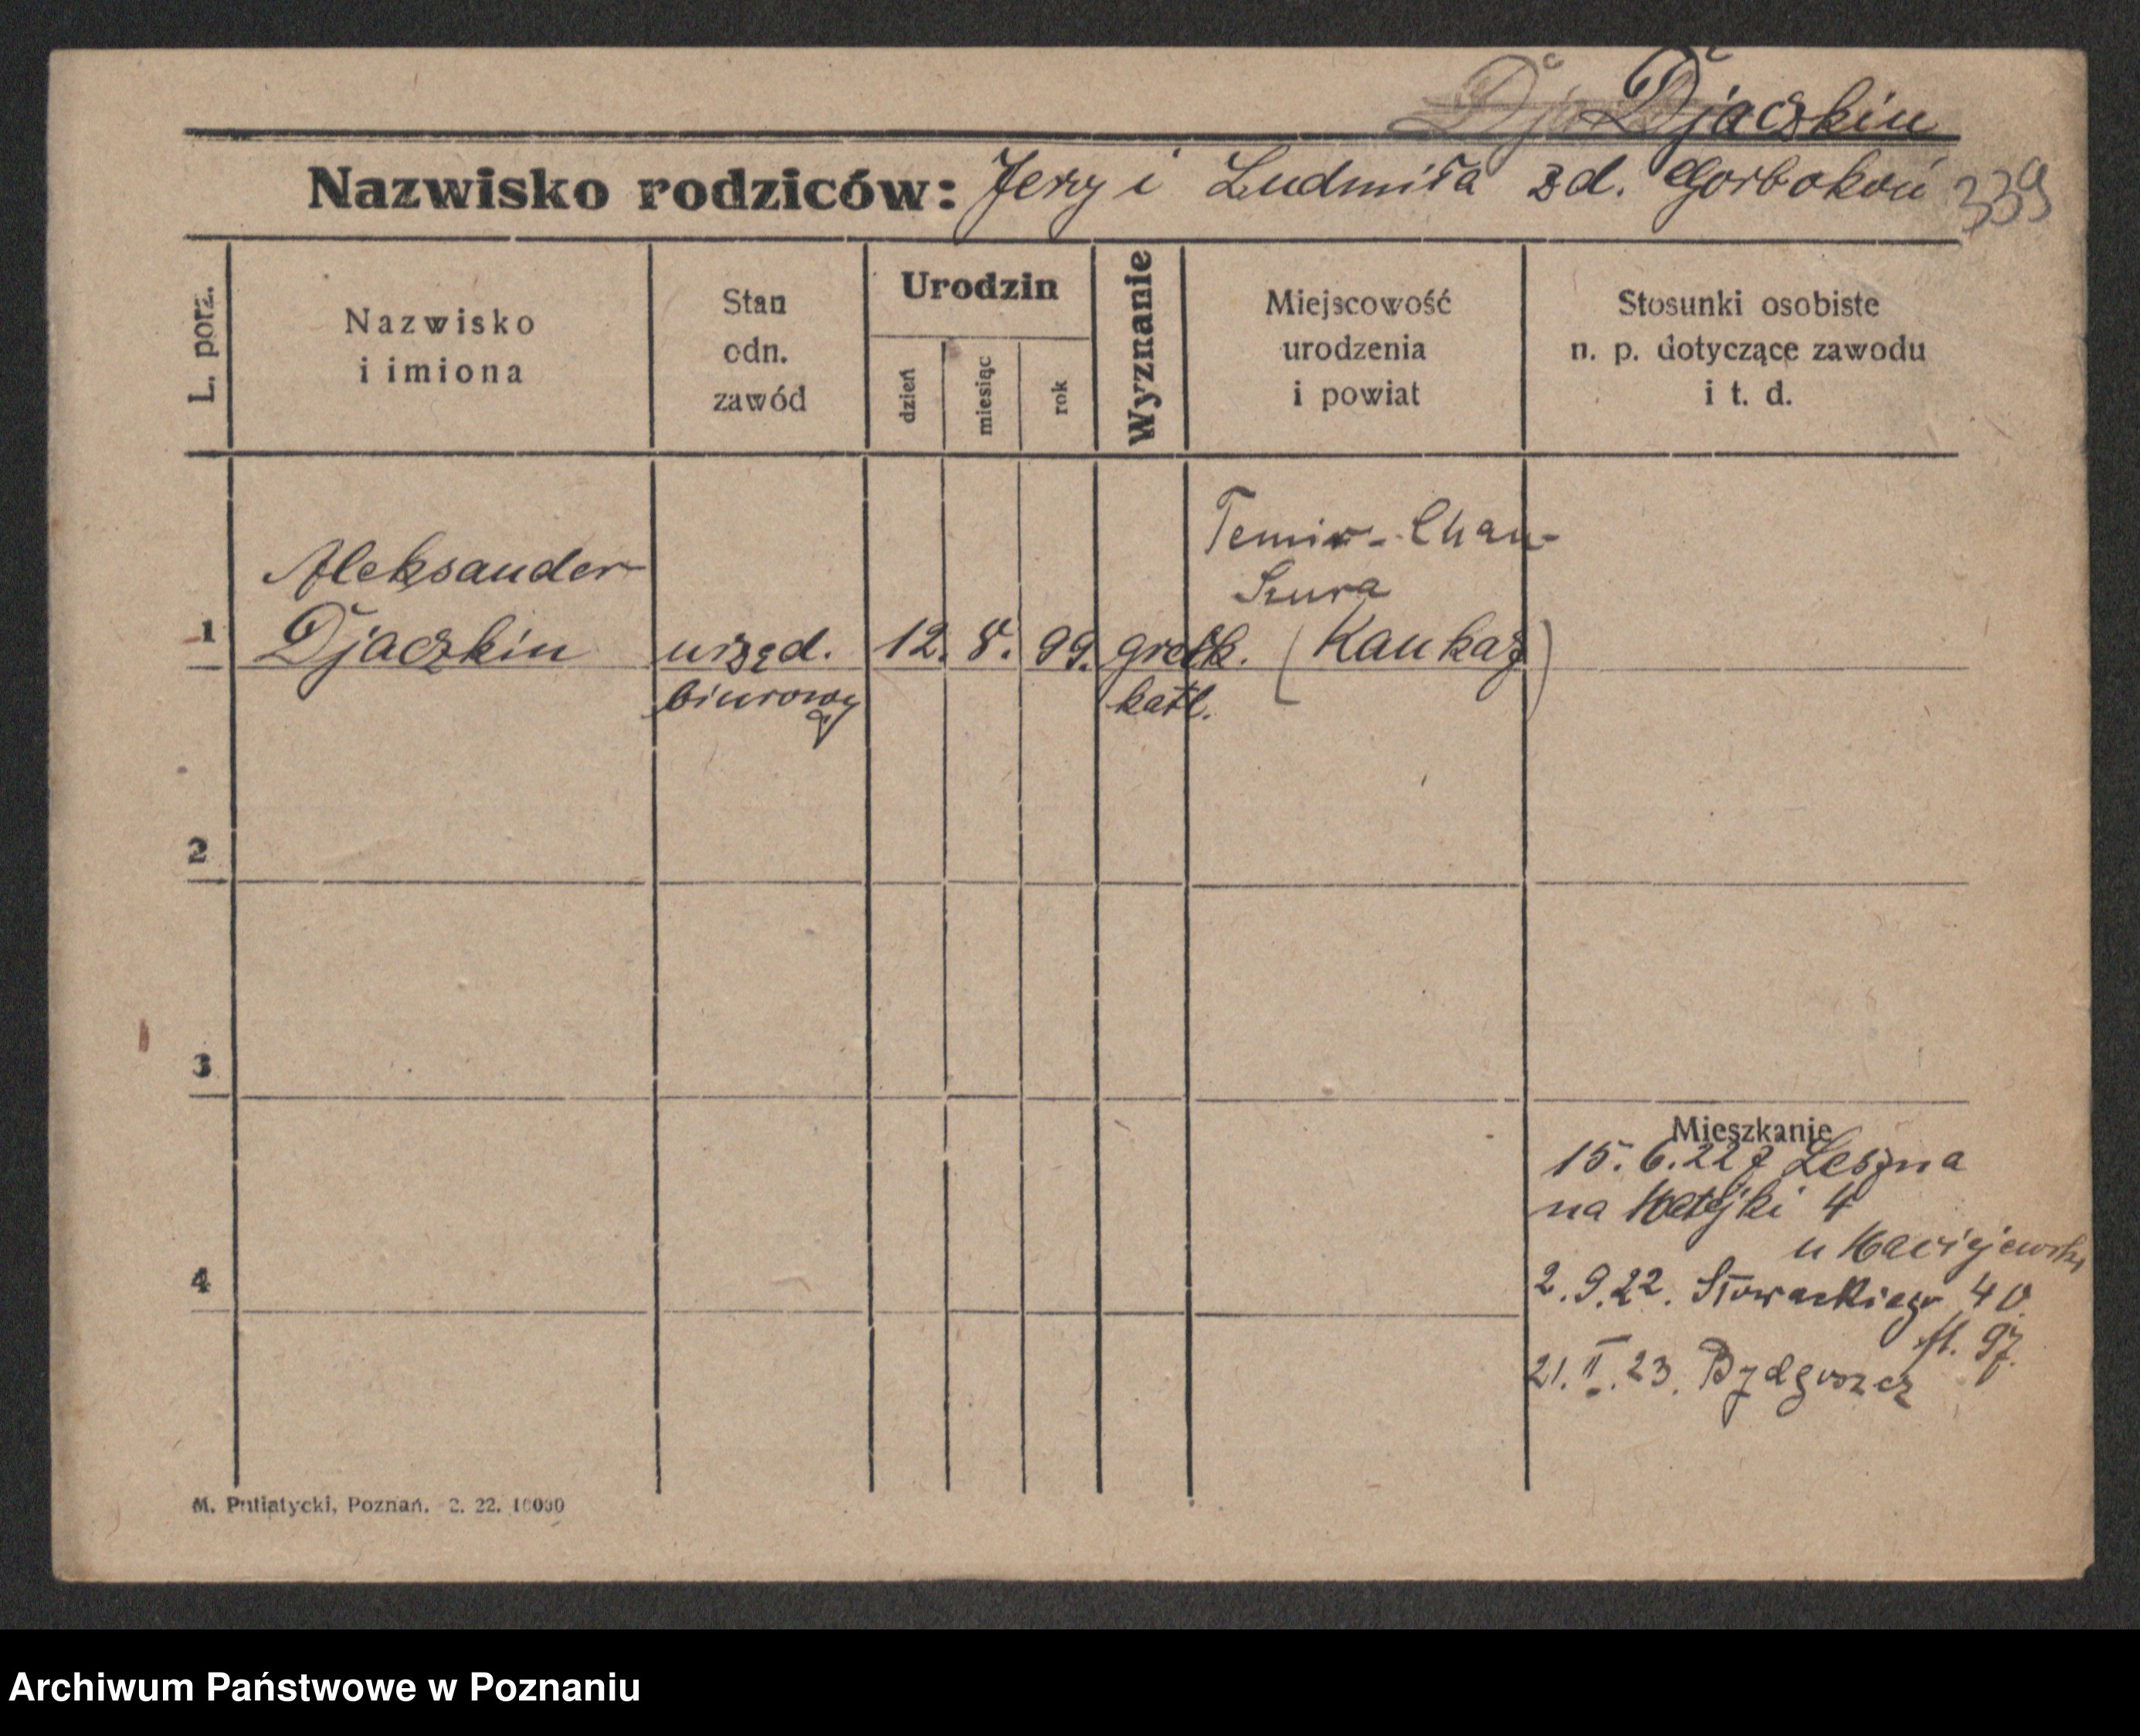 Djaczkin
Nazwisko rodziców: Jerzy i Ludmiła zd. Gorbokoń 339
L. porz.
Nazwisko
i imiona
Stan
odn.
zawód
Urodzin
dzień
miesiąc
rok
Wyznanie
Miejscowość
urodzenia
i powiat
Stosunki osobiste
n. p. dotyczące zawodu
i t. d.
1
Aleksander
Djaczkin
urzęd.
biurowy
12. 8. 99.
greck.
katl.
Temir-Chan-
Szura
(Kaukaz)
2
3
4
Mieszkanie
15. 6. 22 z Leszna
na Matejki 4
u Maciejewski
2. 9. 22. Słowackiego 40
21. II. 23. Bydgoszcz
M. Putiatycki, Poznań. 2. 22. 10000
Archiwum Państwowe w Poznaniu